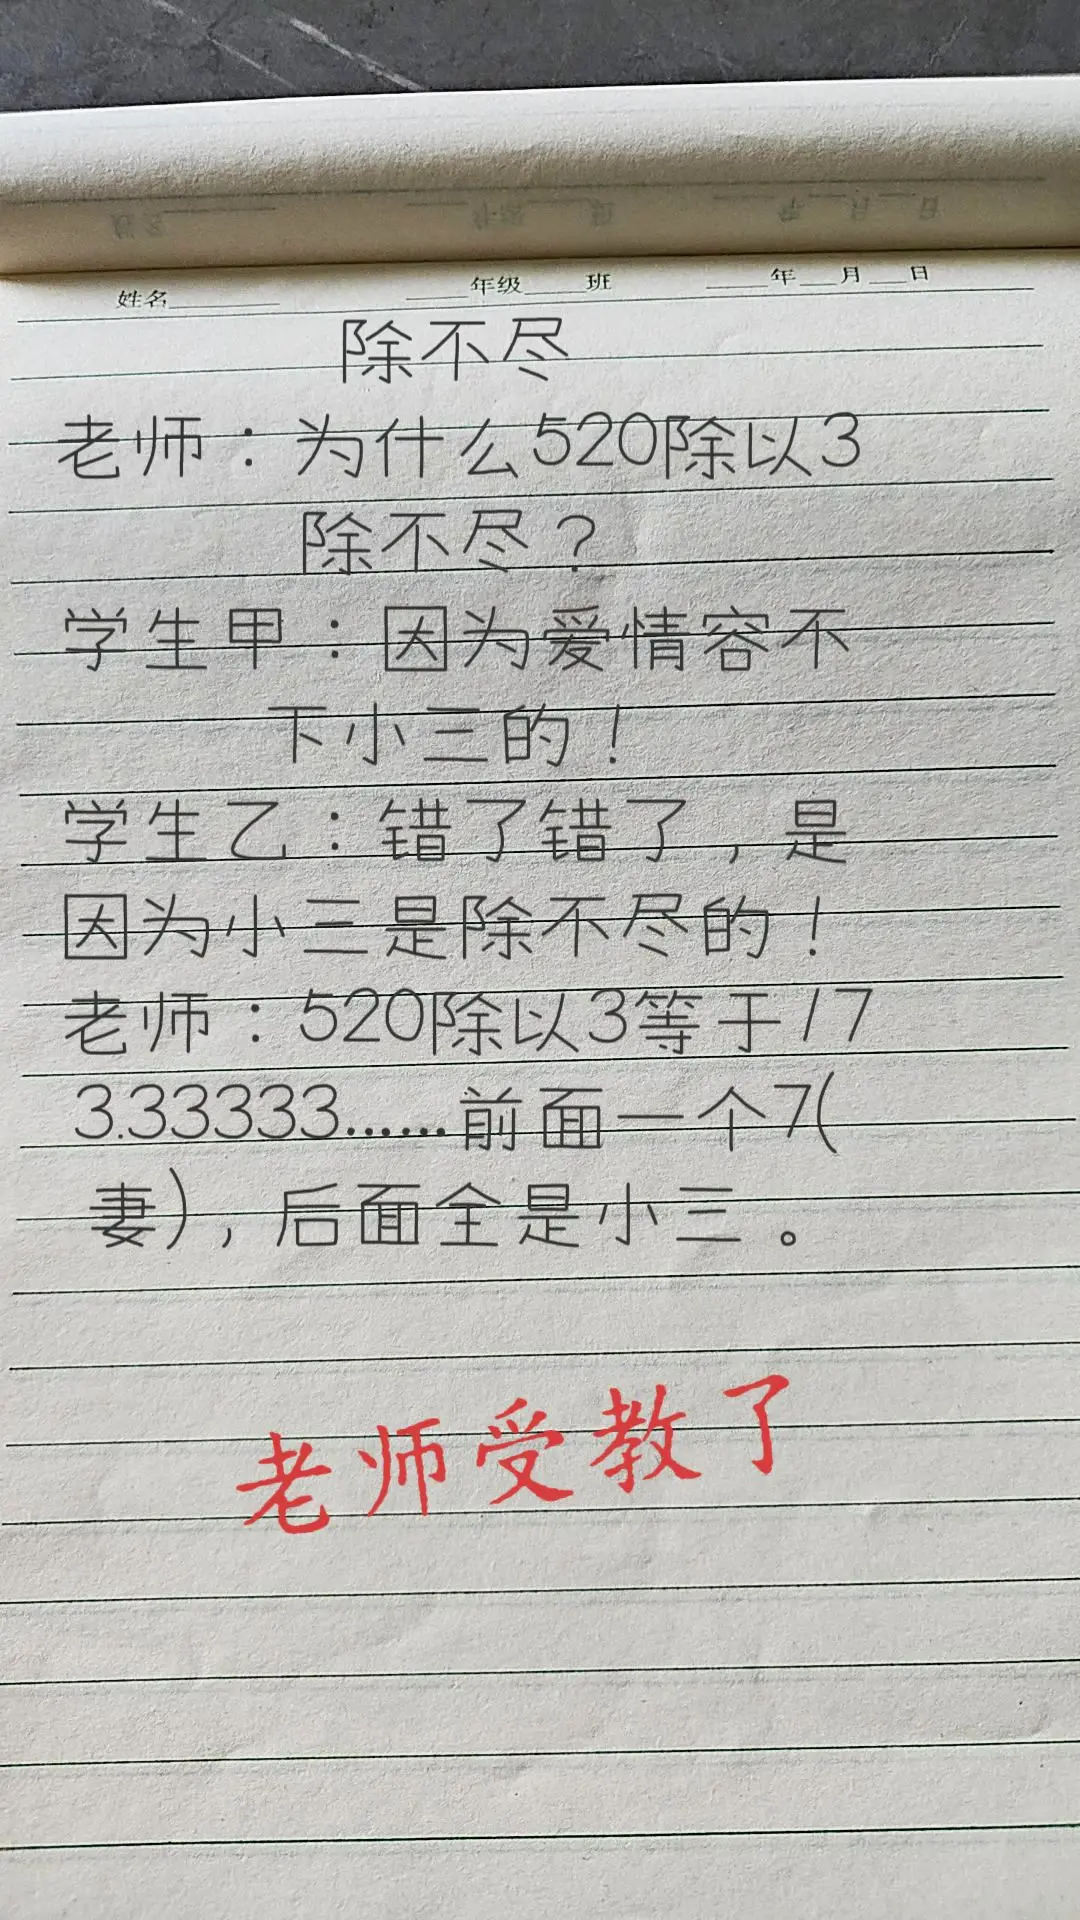 姓名______ ____年级____班 ____年___月___日
除不尽
老师：为什么520除以3
除不尽？
学生甲：因为爱情容不
下小三的！
学生乙：错了错了，是
因为小三是除不尽的！
老师：520除以3等于17
3.33333……前面一个7(
妻)，后面全是小三。
老师受教了